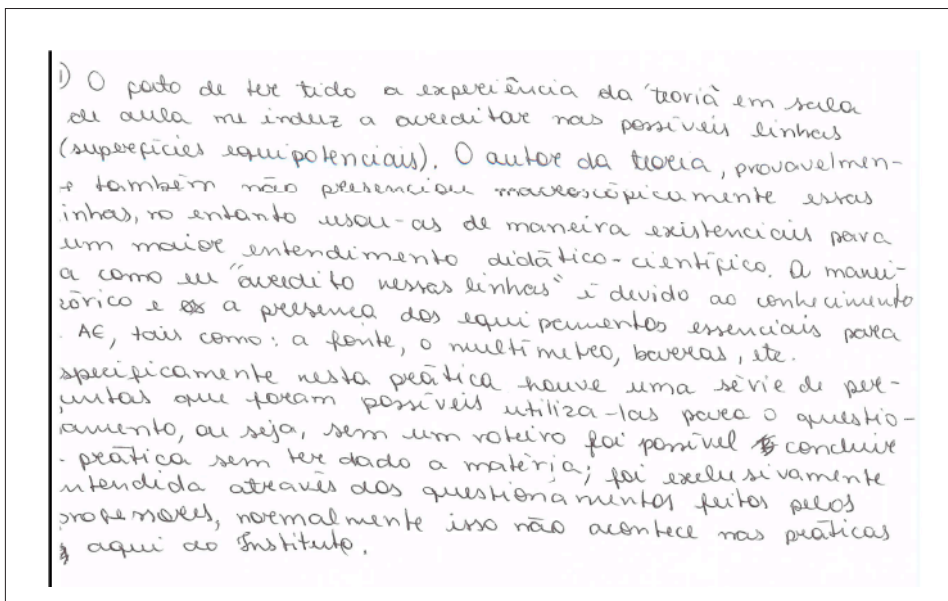 1) O fato de ter tido a experiência da "teoria" em sala
de aula me induz a acreditar nas possíveis linhas
(superfícies equipotenciais). O autor da teoria, provavelmen-
e também não presenciou macroscópicamente essas
inhas, no entanto usou-as de maneira existenciais para
um maior entendimento didático-científico. A manei-
a como eu "acredito nessas linhas" é devido ao conhecimento
eórico e a presença dos equipamentos essenciais para
. AE, tais como: a fonte, o multímetro, barras, etc.
specificamente nesta prática houve uma série de per-
guntas que foram possíveis utiliza-las para o questio-
amento, ou seja, sem um roteiro foi possível concluir
prática sem ter dado a matéria; foi exclusivamente
ntendida através dos questionamentos feitos pelos
professores, normalmente isso não acontece nas práticas
aqui do Instituto.